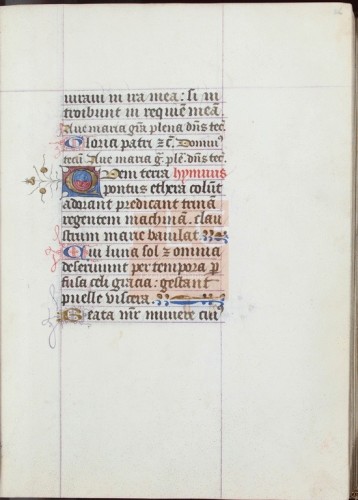 iuravi in ira mea: si in
troibunt in requiē meā.
Aue maria grã plena dñs tec̄.
Gloria patri ⁊ c̄. Dominꝰ
tecū Aue maria g̃. ple. dñs tec̄.
Quem terra hymnus
pontus ethera colūt
adorant predicant trinā
regentem machinā. clau
strum marie baiulat.
Cui luna sol ⁊ omnia
deseruiunt per tempora ꝑ
fusa celi gracia: gestant
puelle viscera.
Beata mr̃ munere cuiꝰ